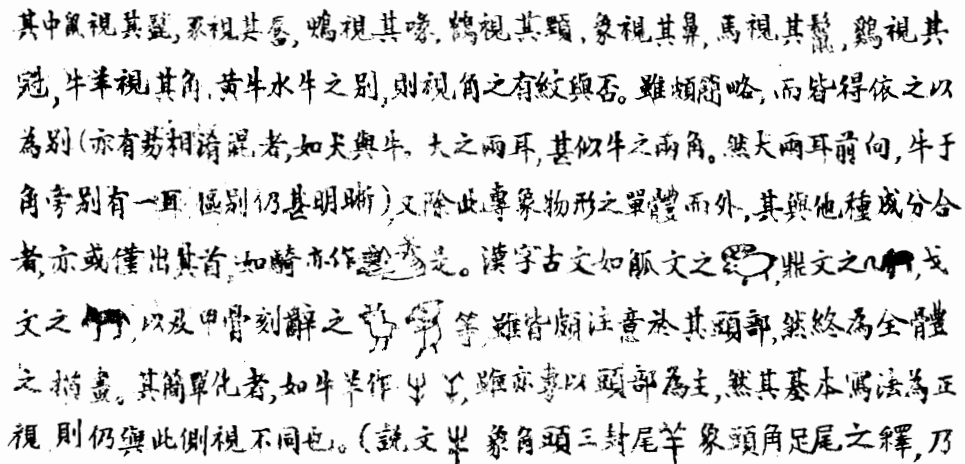 其中鼠視其鬚,豕視其唇,鴨視其喙,鶴視其頸,象視其鼻,馬視其鬣,鷄視其
冠,牛羊視其角,黃牛水牛之别,則視角之有紋與否。雖頗簡略,而皆得依之以
為别(亦有易相淆混者,如犬與牛,犬之兩耳,甚似牛之兩角。然犬兩耳前向,牛于
角旁别有一耳 區别仍甚明晰)又除此專象物形之單體而外,其與他種成分合
者,亦或僅出其首,如騎亦作 是。漢字古文如觚文之 ,鼎文之 ,戈
文之 ,以及甲骨刻辭之 等,雖皆頗注意於其頭部,然終為全體
之描畫。其簡單化者,如牛羊作 ,雖亦專以頭部為主,然其基本寫法為正
視 則仍與此側視不同也。(説文 象角頭三封尾 象頭角足尾之釋,乃